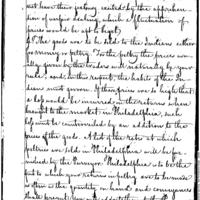 not have their feelings excited by the apprehen-
sion of unfair dealing, which a fluctuation of
prices would be apt to beget.
5th. The goods are to be sold to the Indians either
for money or peltry. For the peltry the prices usu-
ally given by the traders will naturally be your
rule; and in this respect, the habits of the In-
dians must govern. If these prices are so high that
a loss would be incurred in the returns when
brought to the market in Philadelphia, such
loss must be countervailed by an addition to the
price of the goods. A list of the rate at which
peltries are sold in Philadelphia will be fur-
nished by the Purveyor. Philadelphia is to be the
port to which your returns in peltry are to be made
as often as the quantity on hand and conveyances
shall